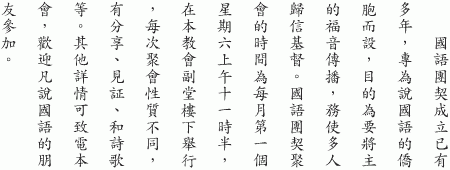 國語團契成立已有
多年，專為說國語的僑
胞而設，目的為要將主
的福音傳播，務使多人
歸信基督。國語團契聚
會的時間為每月第一個
星期六上午十一時半，
在本教會副堂樓下舉行
，每次聚會性質不同，
有分享、見証、和詩歌
等。其他詳情可致電本
會，歡迎凡說國語的朋
友參加。